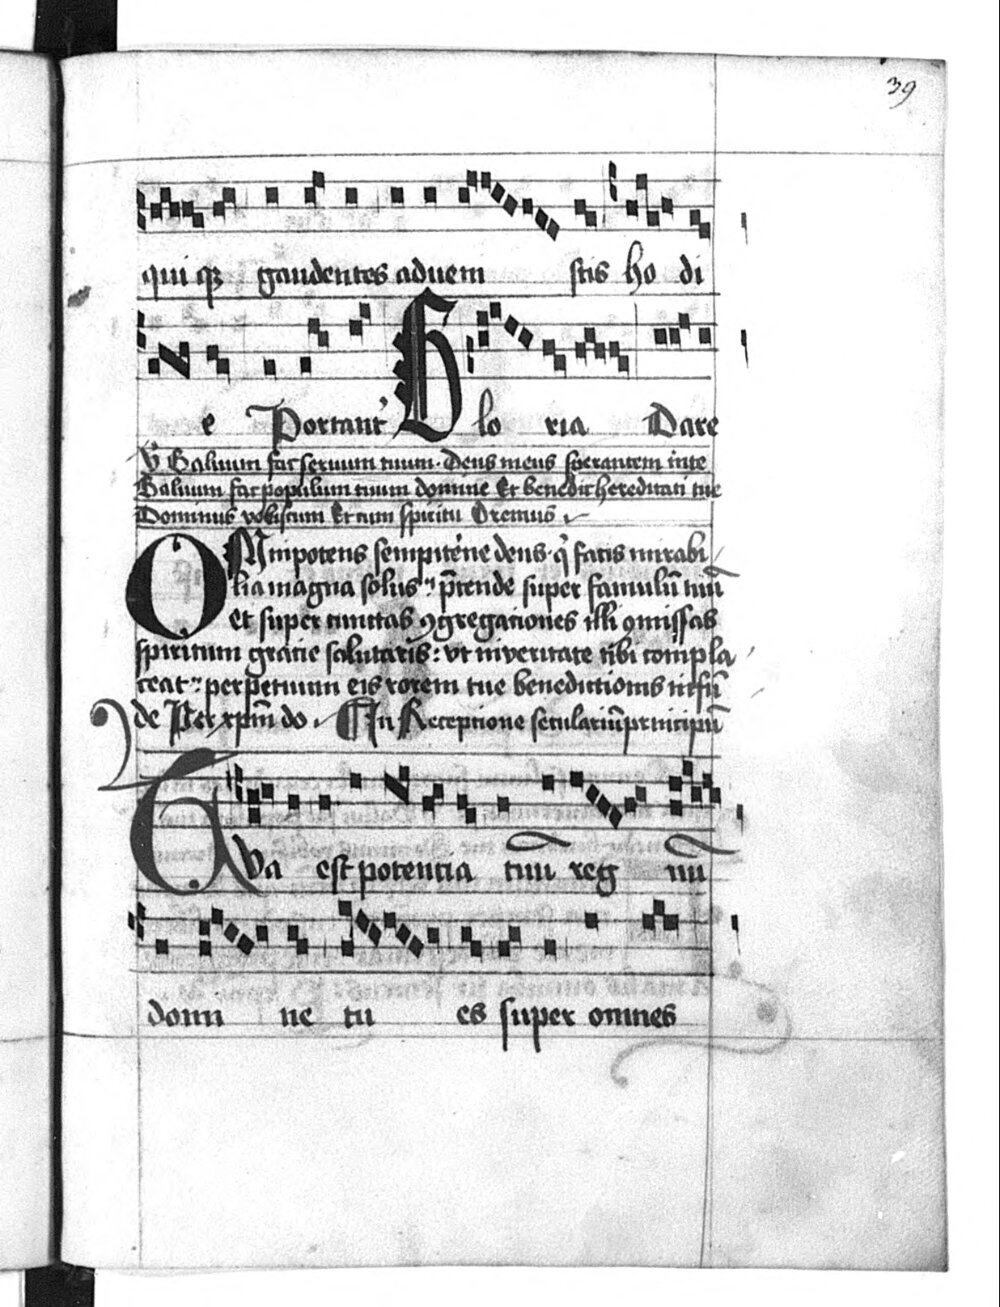 39
qui q3 gaudentes aduem stis ho di
e Portant' Glo ria Dare
V Saluum fac seruum tuum. Deus meus sperantem in te
Saluum fac populum tuum domine Et benedic hereditati tue
Dominus vobiscum Et cum spiritu Oremus
OMnipotens sempiterne deus. q̇ facis mirabi
lia magna solus: p̄tende super famulū tuū
et super cunctas ꝯgregationes illi ꝯmissas
spiritum gratie salutaris: vt in veritate tibi compla
ceat: perpetuum eis rorem tue benedictionis infū
de Per xpm̄ do. ¶ In Receptione seculariū principū
TVa est potentia tuū regnū
domi ne tu es super omnes